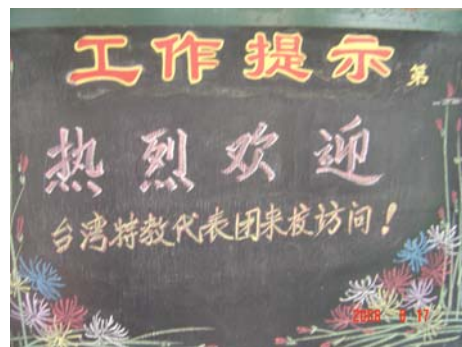 工作提示 第
热烈欢迎
台湾特教代表团来校访问！